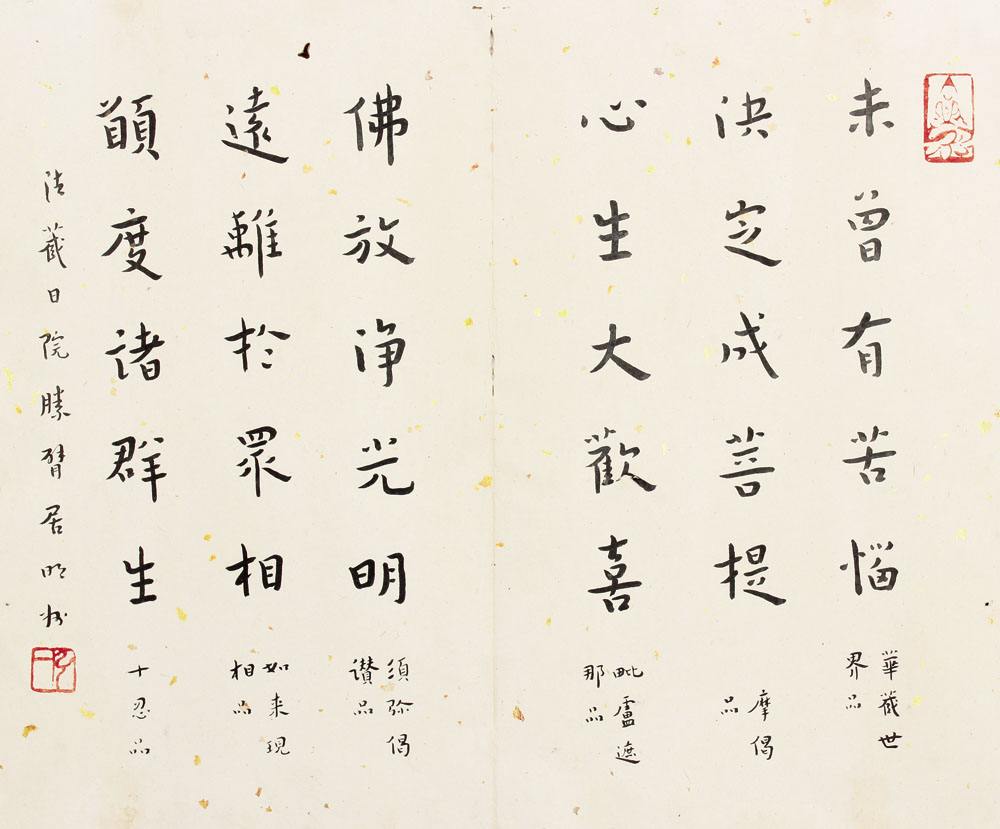 未曾有苦惱
華藏世
界品
決定成菩提
摩偈
品
心生大歡喜
毗盧遮
那品
佛放淨光明
須弥偈
讚品
遠離於眾相
如来現
相品
願度諸群生
十忍品
藏日院勝臂居